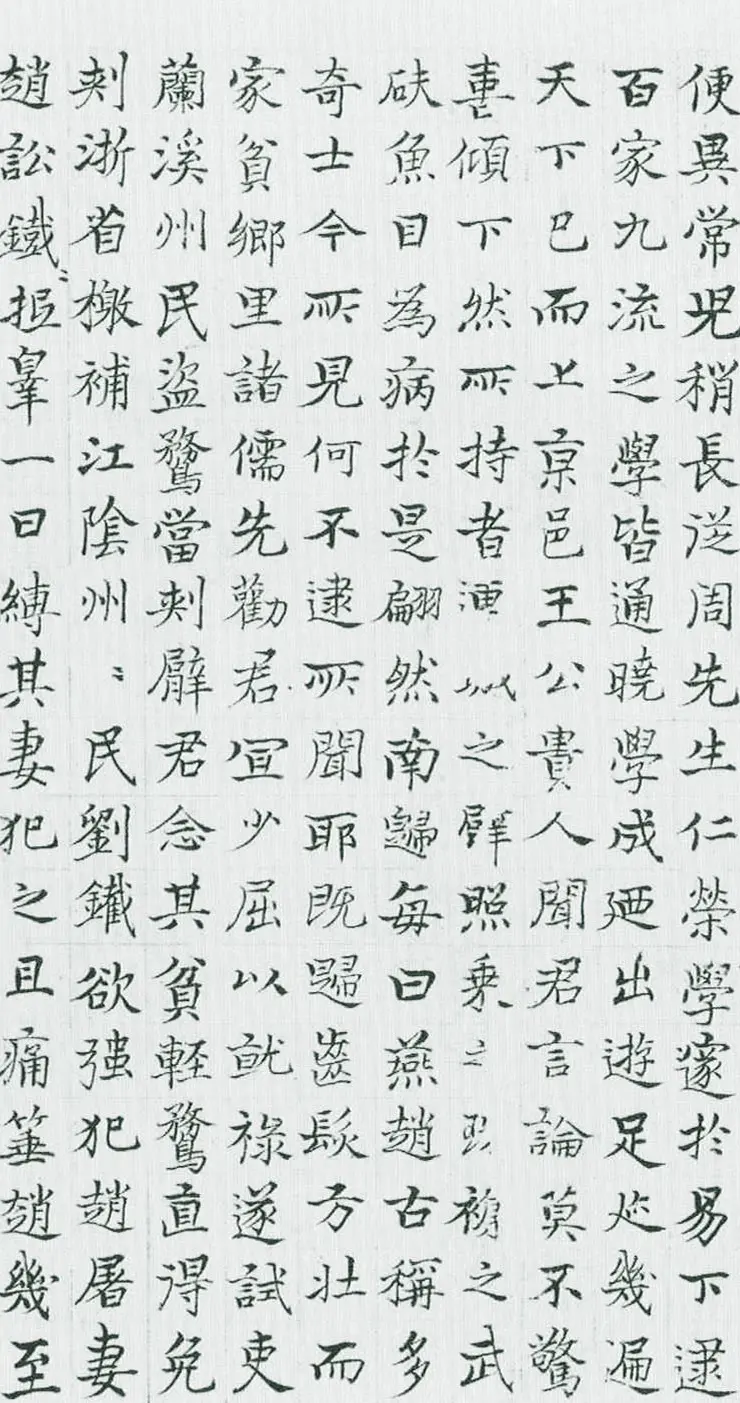 便異常兒稍長從周先生仁榮學邃於易下逮
百家九流之學皆通曉學成廼出遊足迹幾遍
天下已而上京邑王公貴人聞君言論莫不驚
喜傾下然所持者城之璧照乘之之武
砆魚目為病於是翩然南歸每曰燕趙古稱多
奇士今所見何不逮所聞耶既歸齒髮方壯而
家貧鄉里諸儒先勸君宜少屈以就祿遂試吏
蘭溪州民盜鶩當刺臂君念其貧輕鶩直得免
刺浙省檄補江陰州〻民劉鐵欲強犯趙屠妻
趙訟鐵〻抵辠一日縛其妻犯之且痛箠趙幾至